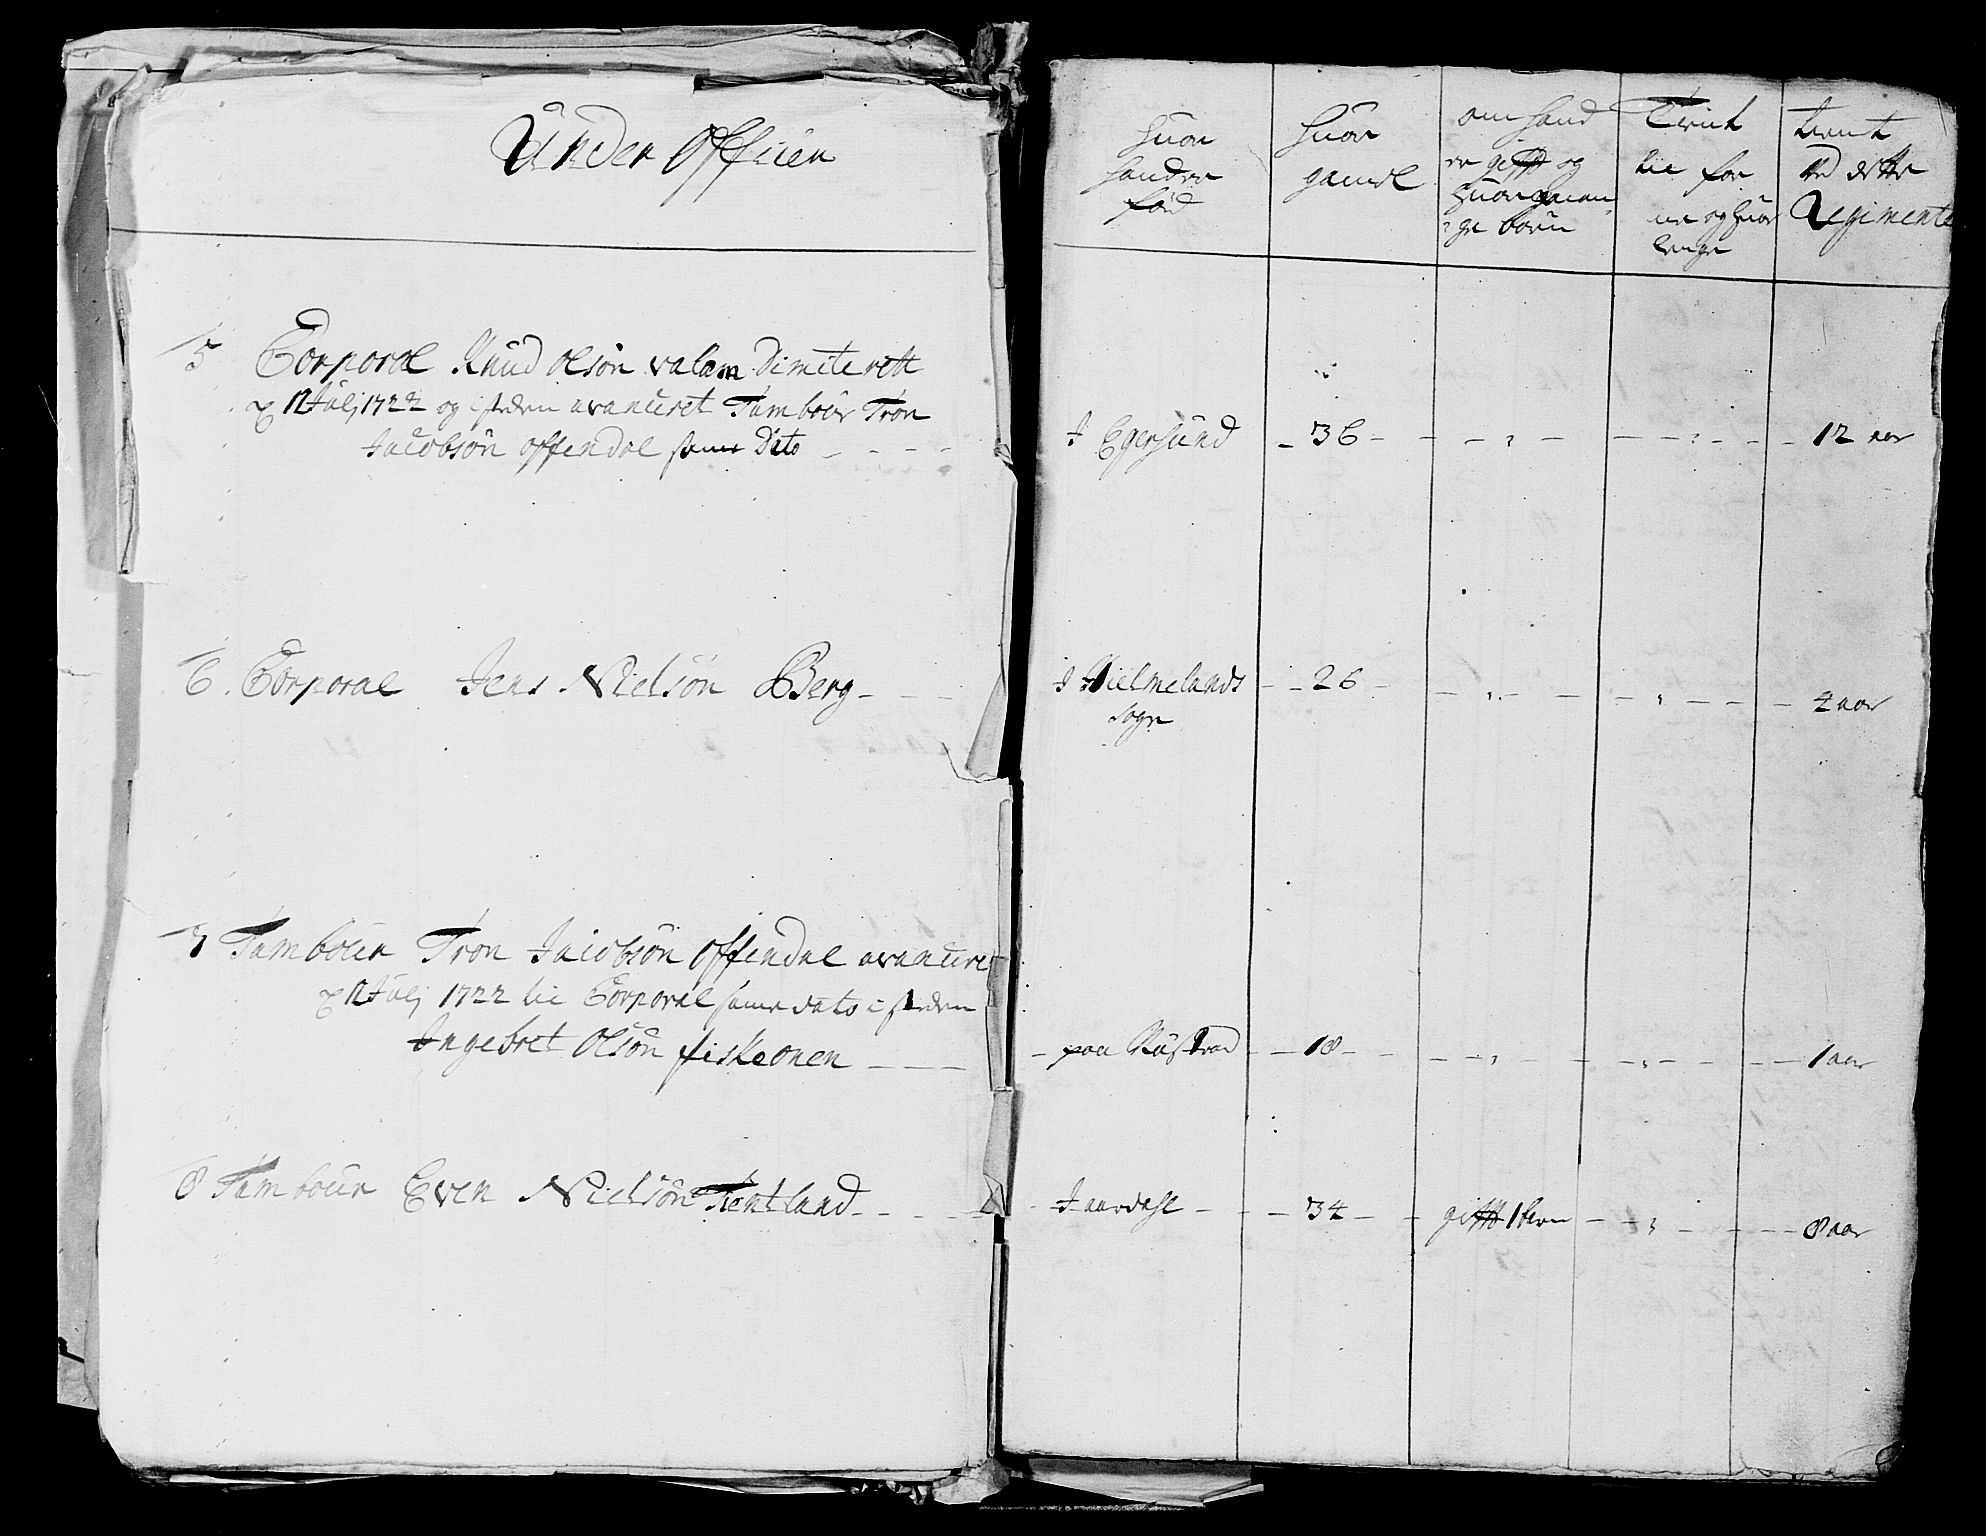 Under Officier
5 Corporal Knud olsön valam Dimiterett
12 Julj 1722 og i steden avanceret Tambour Tron
Jacobsön offendal samme Dito
6. Corporal Jens Nielsön Berg
7 Tambour Tron Jacobsön offendal avanceret
12 Julj 1722 til Corporal samme dato i steden
Ingebret olsön fiskeonen
8 Tambour Even Nielsön Tientland
huor
hand er
föd
huor
gamel
om hand
er gifft og
huor man-
ge börn
Tient
til for
ne og huor
lenge
tient
ved dette
Regimente
I Egersund 36 " " 12 aar
I Hielmelands 26 " " 4 aar
sogn
paa 18 " " 1 aar
I aardahl 34 gifft 1 barn " 8 aar